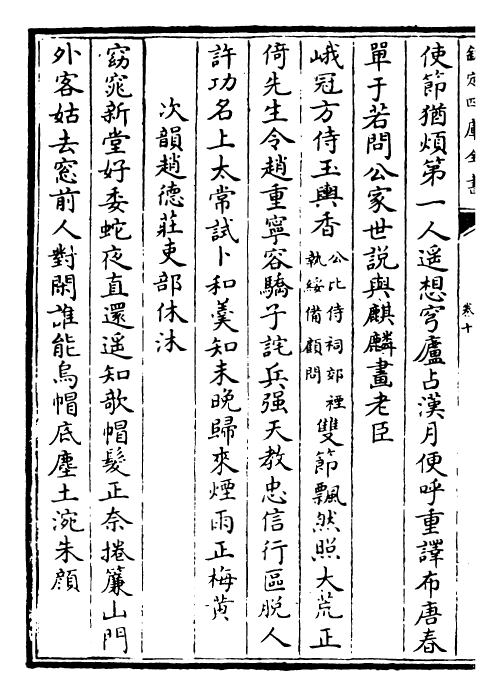 欽定四庫全書
卷十
使節猶煩第一人遥想穹廬占漢月便呼重譯布唐春
單于若問公家世說與麒麟畫老臣
峨冠方侍玉輿香公比侍祠郊禋執綏備顧問雙節飄然照大荒正
倚先生令趙重寧容驕子詫兵强天教忠信行區脱人
許功名上太常試卜和羮知未晚歸來煙雨正梅黄
次韻趙德莊吏部休沐
窈窕新堂好委蛇夜直還遥知歌帽髮正奈捲簾山門
外客姑去窓前人對閑誰能烏帽底塵土涴朱顔